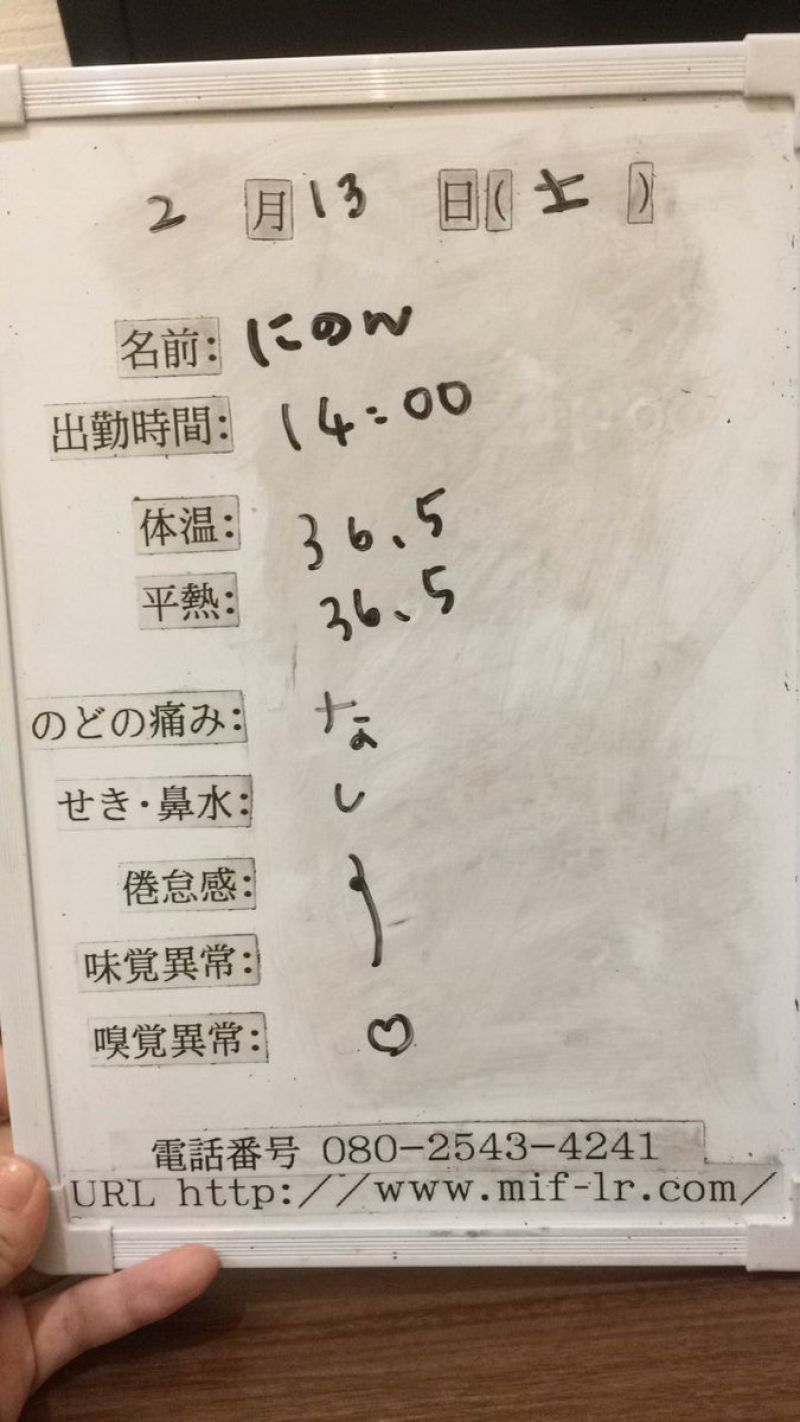 2月13日(土)
名前: にのん
出勤時間: 14:00
体温: 36.5
平熱: 36.5
のどの痛み: な
せき・鼻水: し
倦怠感: 
味覚異常: 
嗅覚異常: ♡
電話番号 080-2543-4241
URL http://www.mif-lr.com/